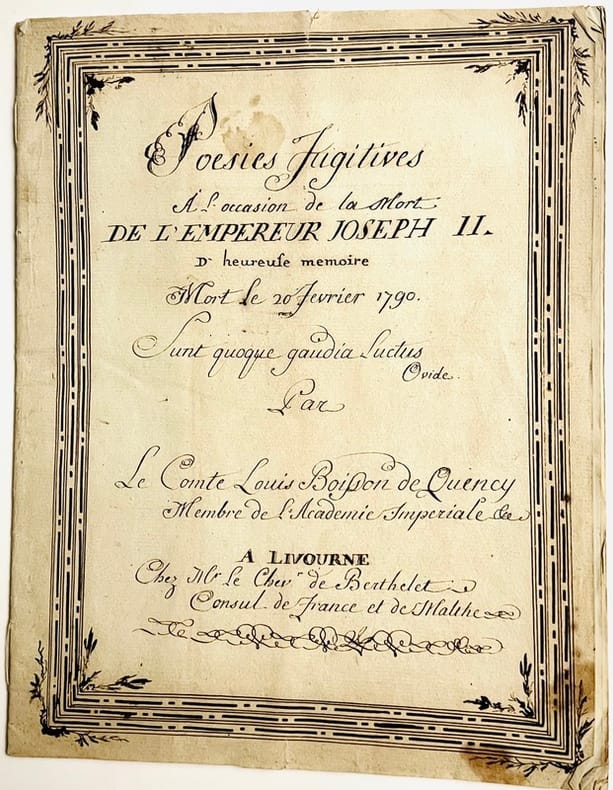 Poesies Fugitives
A l'occasion de la Mort
DE L'EMPEREUR JOSEPH II.
D' heureuſe memoire
Mort le 20 fevrier 1790.
Sunt quoque gaudia Luctus
Ovide.
Par
Le Comte Louis Boiſson de Quency
Membre de l'Academie Imperiale &c
A LIVOURNE
Chez Mr. le Chevr. de Berthelet
Consul de France et de Malthe